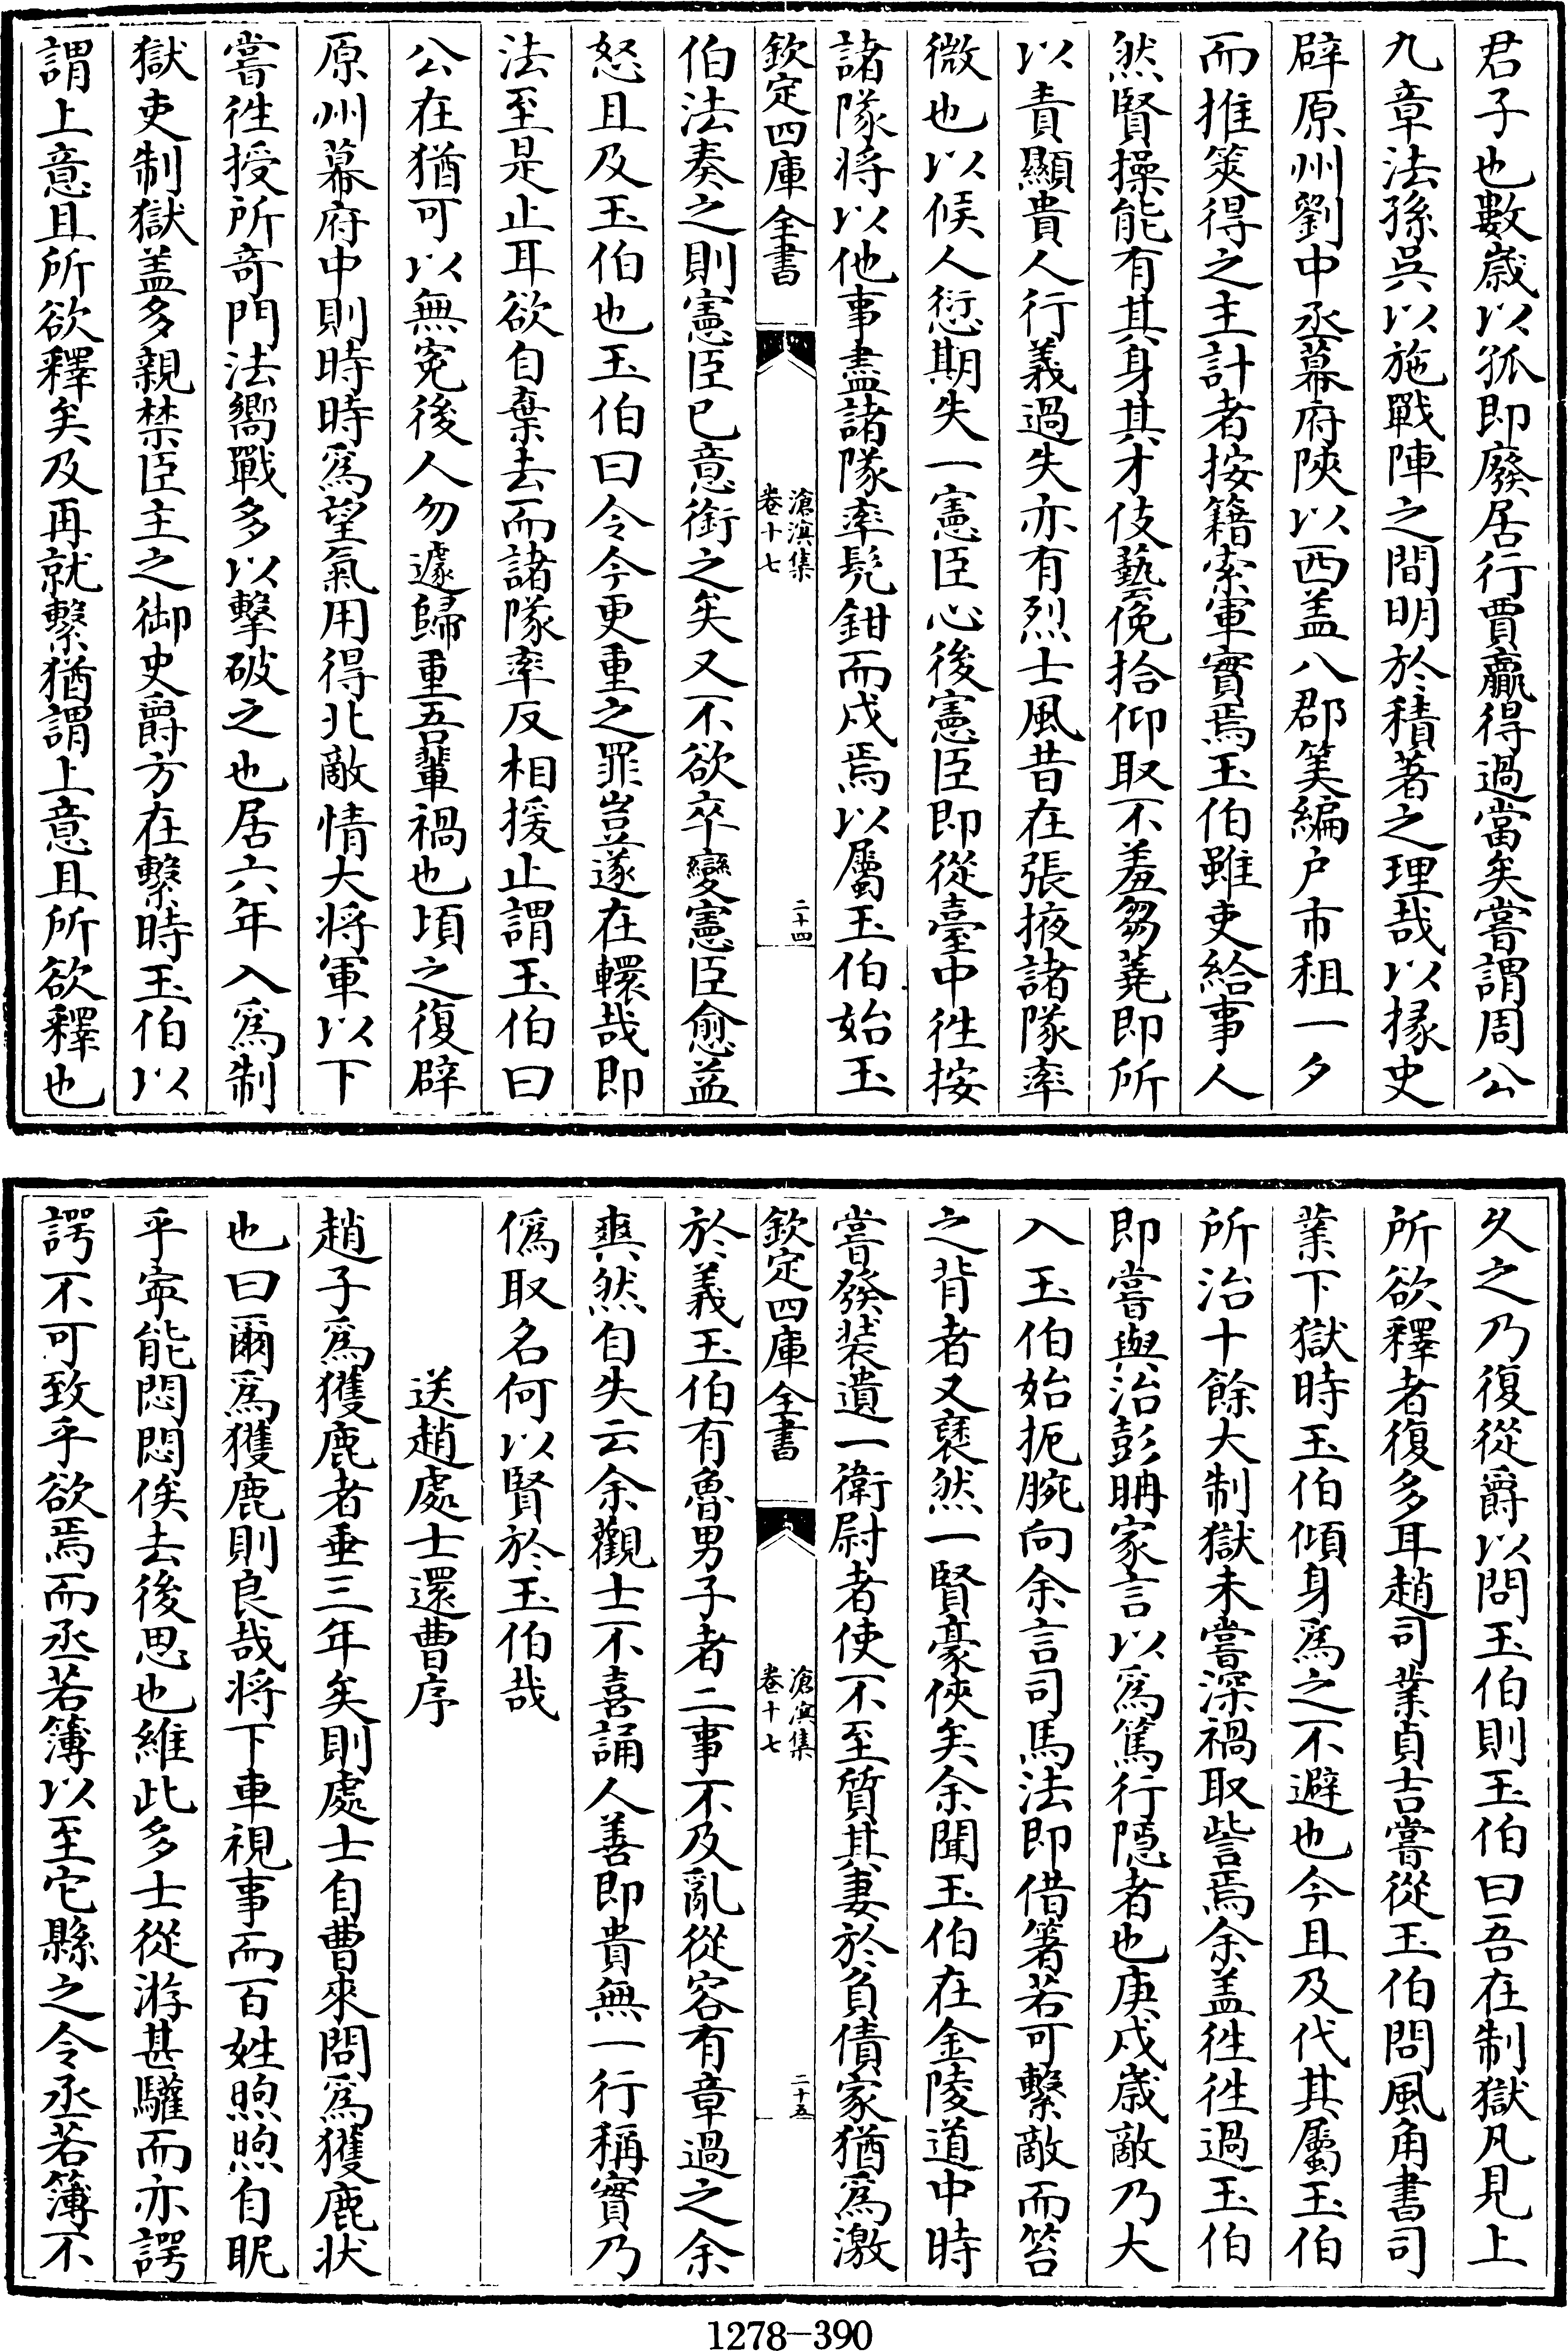 君子也數歳以孤即廢居行賈贏得過當矣嘗謂周公
九章法孫吳以施戰陣之間明於積著之理哉以掾史
辟原州劉中丞幕府陜以西盖八郡筭編户市租一夕
而推筴得之主計者按籍索軍實焉玉伯雖吏給事人
然賢操能有其身其才伎藝俛拾仰取不羞芻蕘即所
以責顯貴人行義過失亦有烈士風昔在張掖諸隊率
微也以候人愆期失一憲臣心後憲臣即從臺中徃按
諸隊将以他事盡諸隊率髠鉗而戍焉以屬玉伯始玉
欽定四庫全書
滄溟集
卷十七
二十四
伯法奏之則憲臣已意銜之矣又不欲卒變憲臣愈益
怒且及玉伯也玉伯曰令今更重之罪豈遂在轘哉即
法至是止耳欲自棄去而諸隊率反相援止謂玉伯曰
公在猶可以無寃後人勿遽歸重吾輩禍也頃之復辟
原州幕府中則時時爲望氣用得北敵情大将軍以下
嘗徃授所竒門法嚮戰多以擊破之也居六年入爲制
獄吏制獄盖多親禁臣主之御史爵方在繫時玉伯以
謂上意且所欲釋矣及再就繫猶謂上意且所欲釋也
久之乃復從爵以問玉伯則玉伯曰吾在制獄凡見上
所欲釋者復多耳趙司業貞吉嘗從玉伯問風角書司
業下獄時玉伯傾身爲之不避也今且及代其屬玉伯
所治十餘大制獄未嘗深禍取訾焉余盖徃徃過玉伯
即嘗與治彭冉家言以爲篤行隠者也庚戍歳敵乃大
入玉伯始扼腕向余言司馬法即借箸若可繫敵而笞
之背者又襃然一賢豪俠矣余聞玉伯在金陵道中時
嘗發装遺一衛尉者使不至質其妻於負債家猶爲激
欽定四庫全書
滄溟集
卷十七
二十五
於義玉伯有魯男子者二事不及亂從容有章過之余
爽然自失云余觀士不喜誦人善即貴無一行稱實乃
僞取名何以賢於玉伯哉
送趙處士還曹序
趙子爲獲鹿者垂三年矣則處士自曹來問爲獲鹿狀
也曰爾爲獲鹿則良哉将下車視事而百姓煦煦自眤
乎寕能悶悶俟去後思也維此多士從游甚驩而亦諤
諤不可致乎欲焉而丞若簿以至它縣之令丞若簿不
1278-390